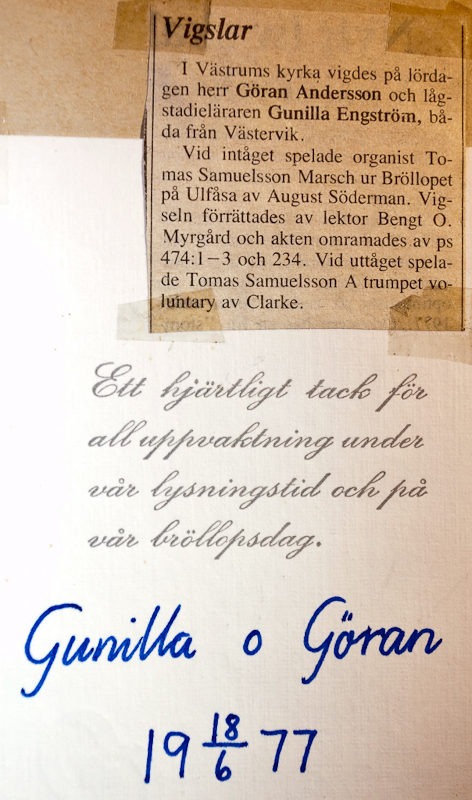 Vigslar
I Västrums kyrka vigdes på lörda-
gen herr Göran Andersson och låg-
stadieläraren Gunilla Engström, bå-
da från Västervik.
Vid intåget spelade organist To-
mas Samuelsson Marsch ur Bröllopet
på Ulfåsa av August Söderman. Vig-
seln förrättades av lektor Bengt O.
Myrgård och akten omramades av ps
474:1–3 och 234. Vid uttåget spela-
de Tomas Samuelsson A trumpet vo-
luntary av Clarke.
Ett hjärtligt tack för
all uppvaktning under
vår lysningstid och på
vår bröllopsdag.
Gunilla o Göran
19 18/6 77